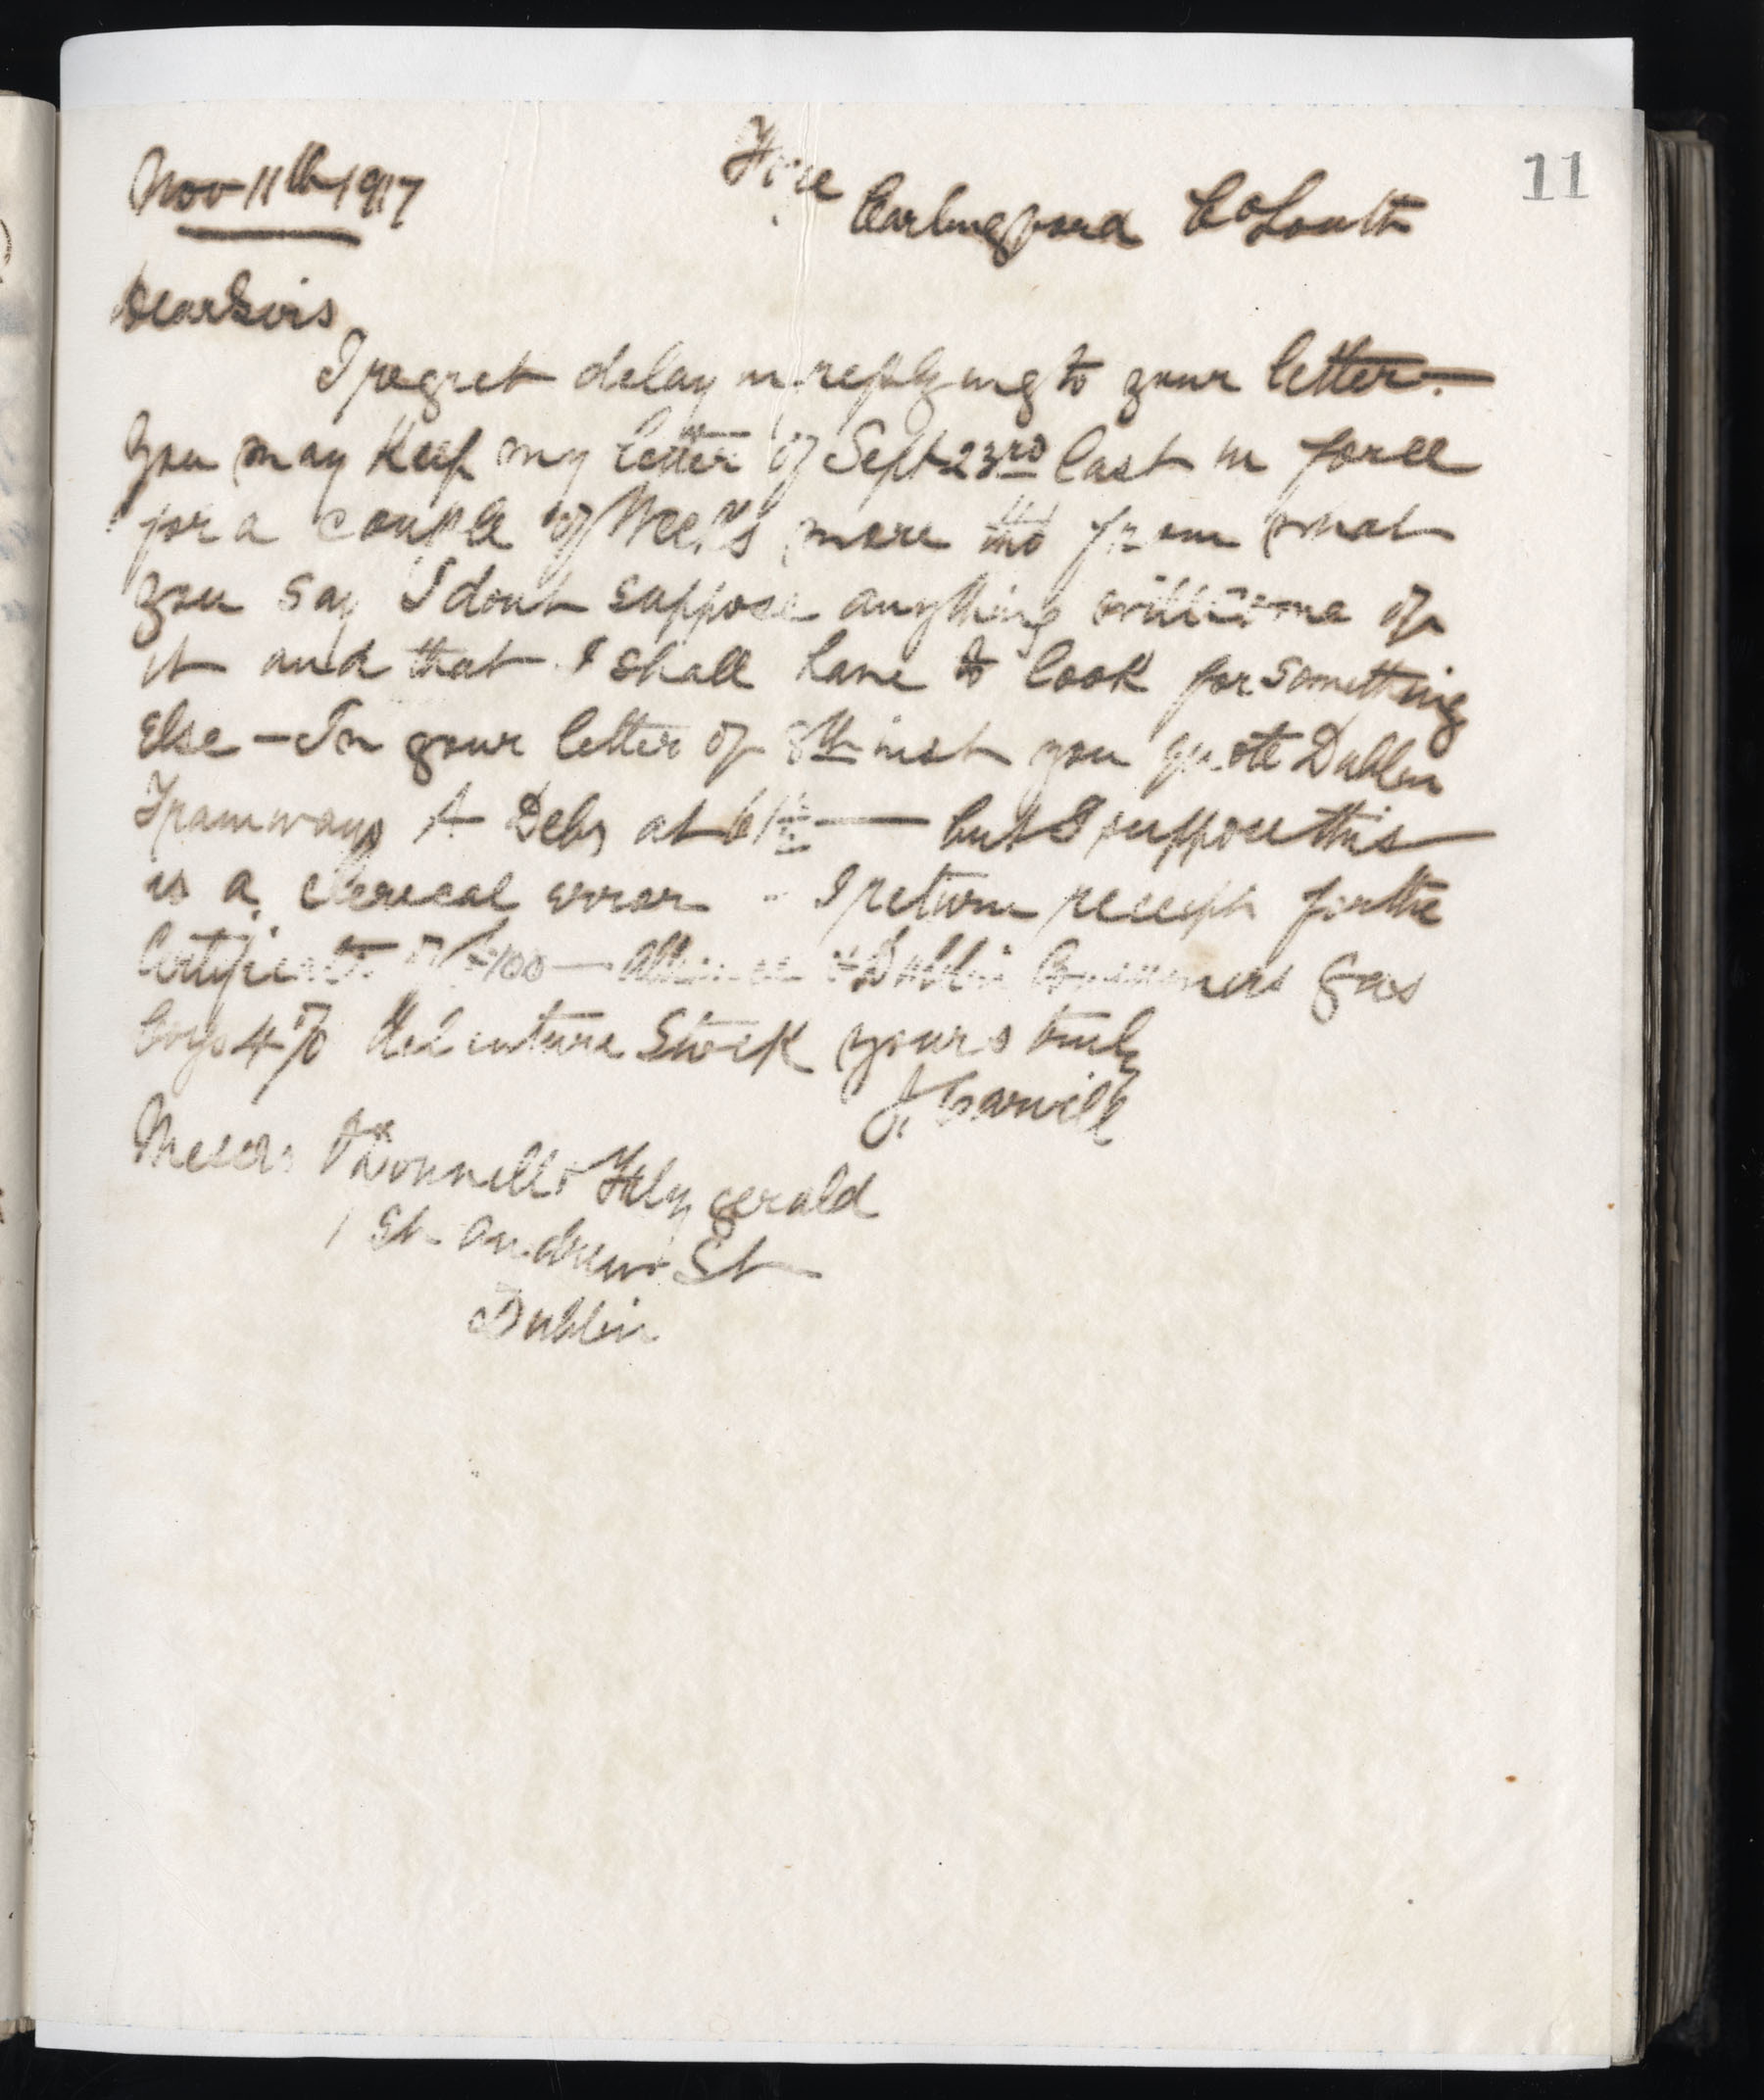 11
Nov 11th 1917
Carlingford Co Louth
Dear Sirs
I regret delay in replying to your letter.—
You may keep my letter of Sept 23rd last in force
for a couple of Weeks more tho from what
you say I dont suppose anything will come of
it and that I shall have to look for something
else — In your letter of 8th inst you quote Dublin
Tramways A Debs at 61½ — but I suppose this
is a clerical error - I return receipt for the
Certificate of £100 — Alliance & Dublin Consumers Gas
Coys 4% debenture Stock yours truly
J. Carvill
Messrs O'Donnell & Fitzgerald
1 St Andrew St
Dublin